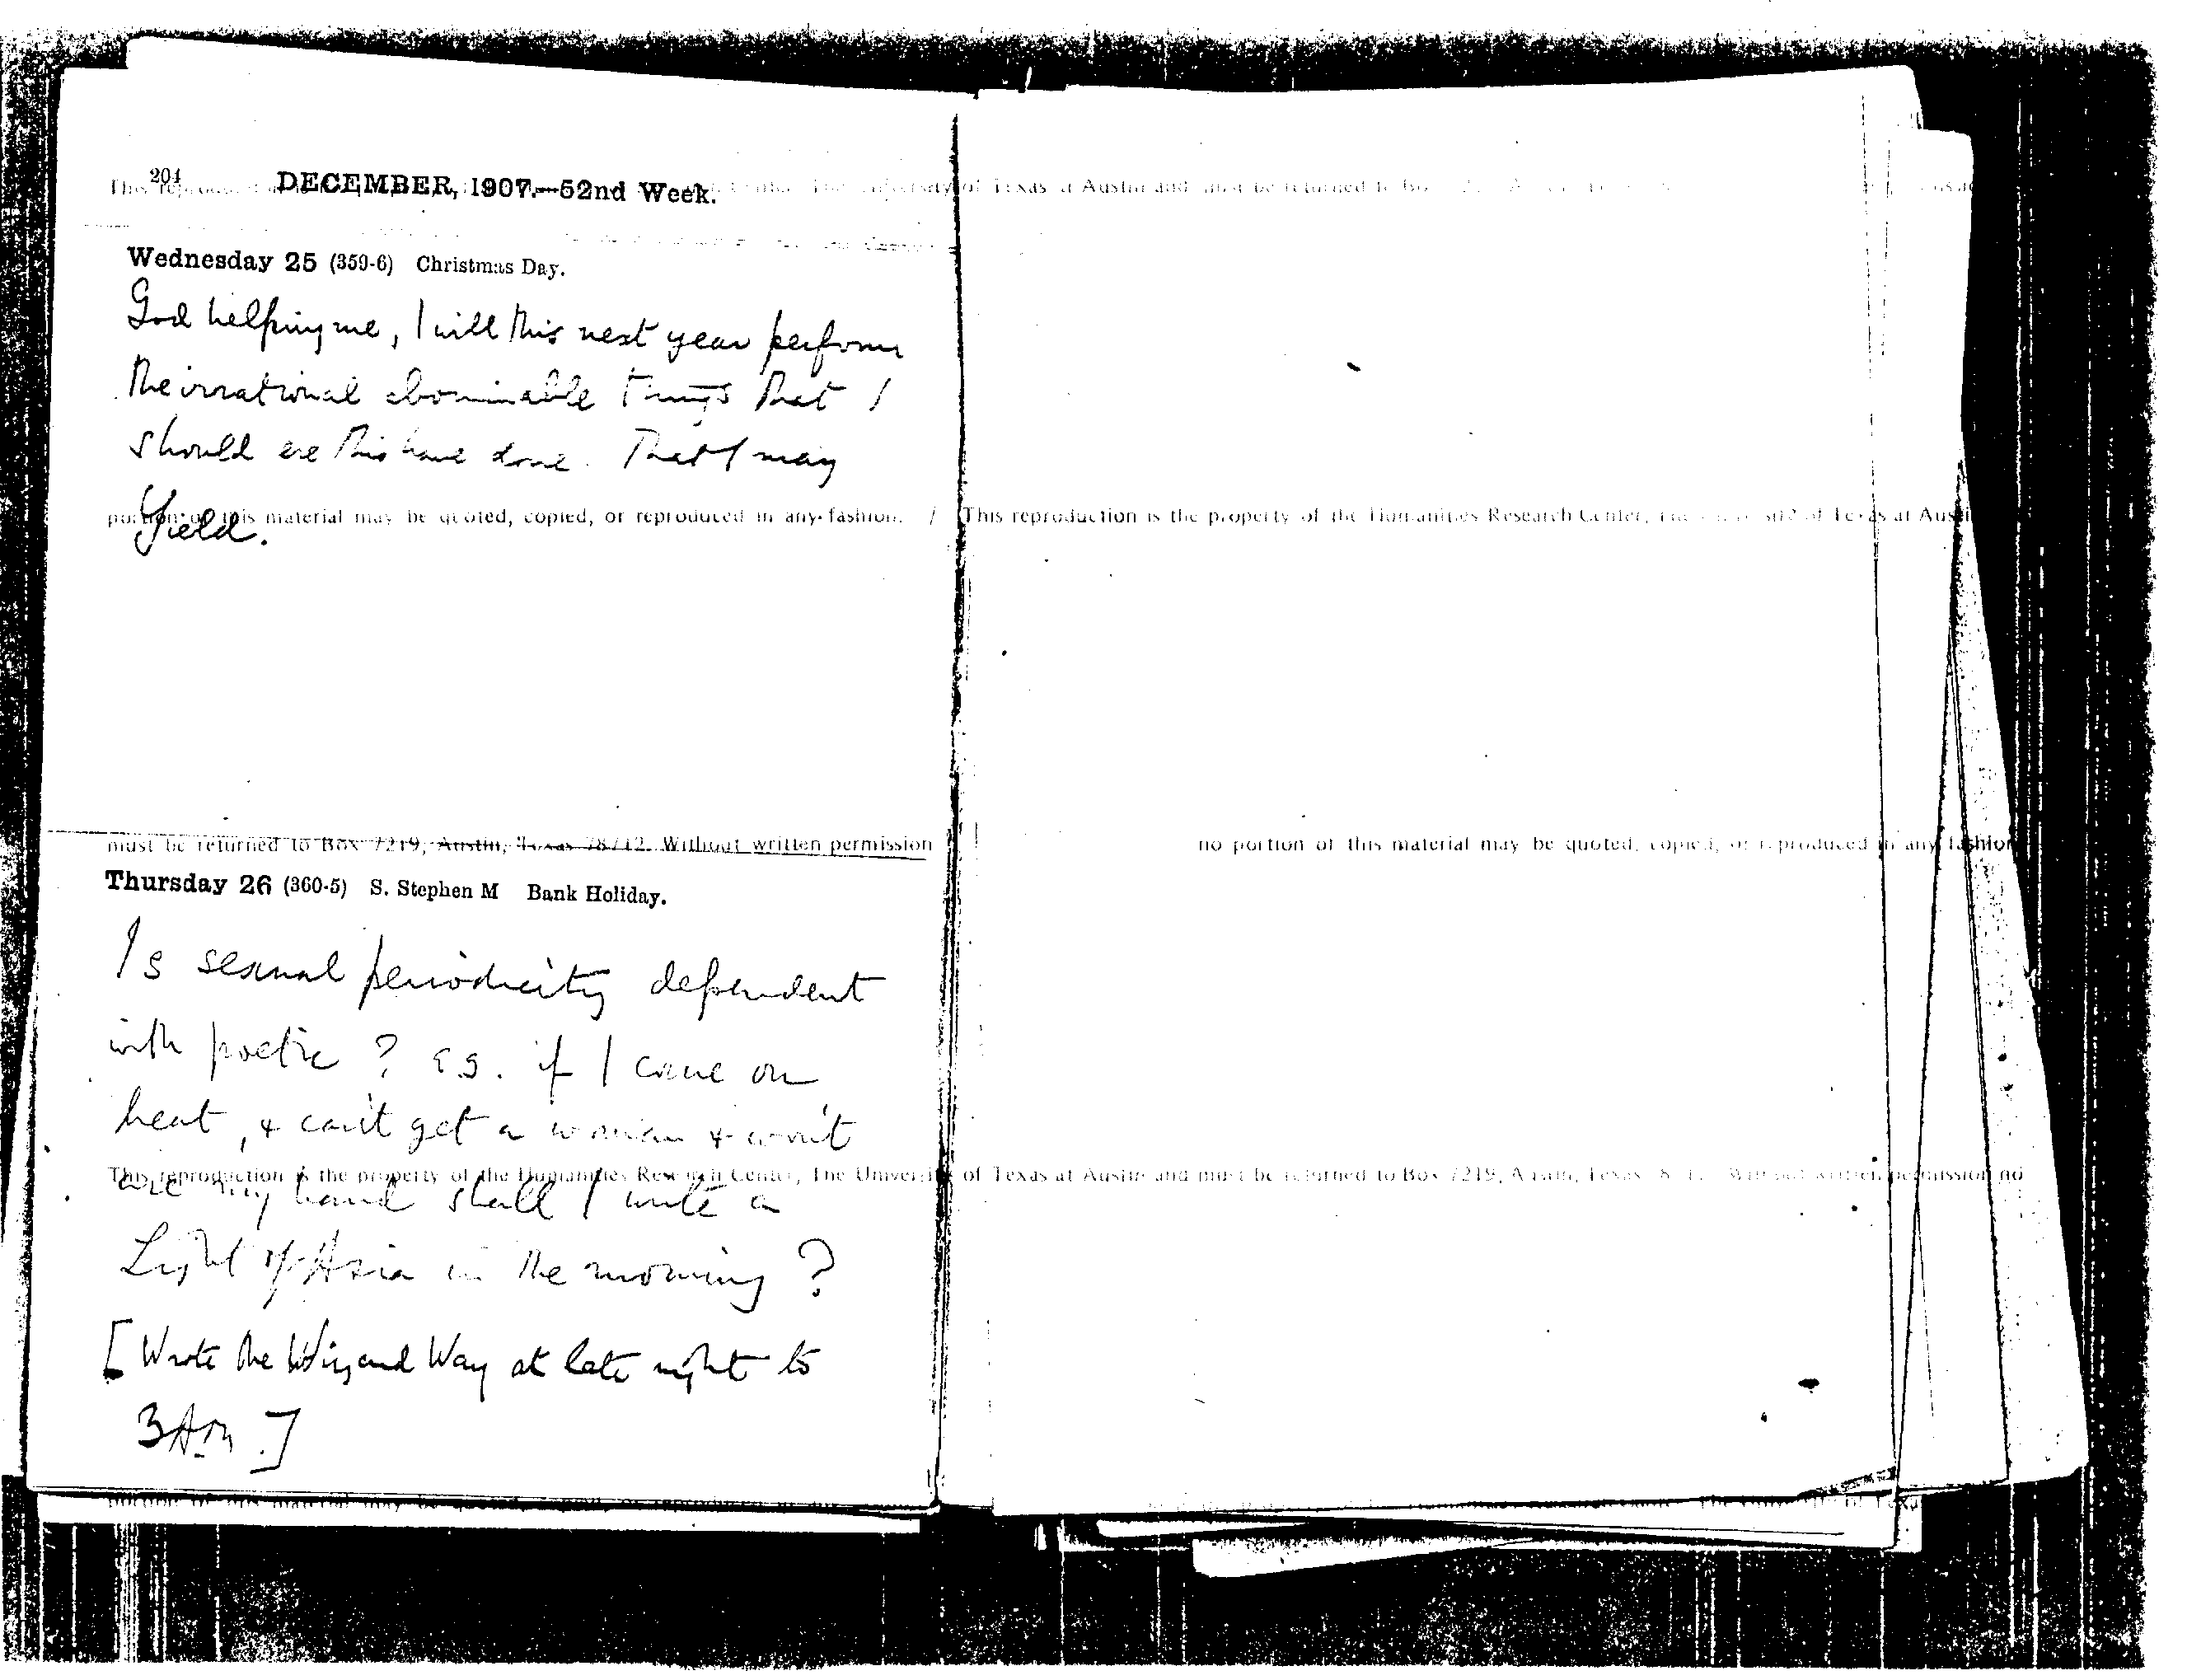 204 DECEMBER, 1907.—52nd Week.
Wednesday 25 (359-6) Christmas Day.
God helping me, I will this next year perform
the irrational abominable things that I
should ere this have done. That I may
portion of this material may be quoted, copied, or reproduced in any fashion. / This reproduction is the property of the Humanities Research Center, of Texas at Austin
Yield.
must be returned to Box 7219, Austin, Texas 78712. Without written permission no portion of this material may be quoted, copied, or reproduced in any fashion
Thursday 26 (360-5) S. Stephen M Bank Holiday.
Is sexual periodicity dependent
with poetic? e.g. if I come on
heat, & can't get a woman & won't
This reproduction is the property of the Humanities Research Center, The University of Texas at Austin and must be returned to Box 7219, Austin, Texas Without written permission no
use my hand shall I write a
Light of Asia in the morning?
[Wrote the Wizard Way at late night to
3 AM.]